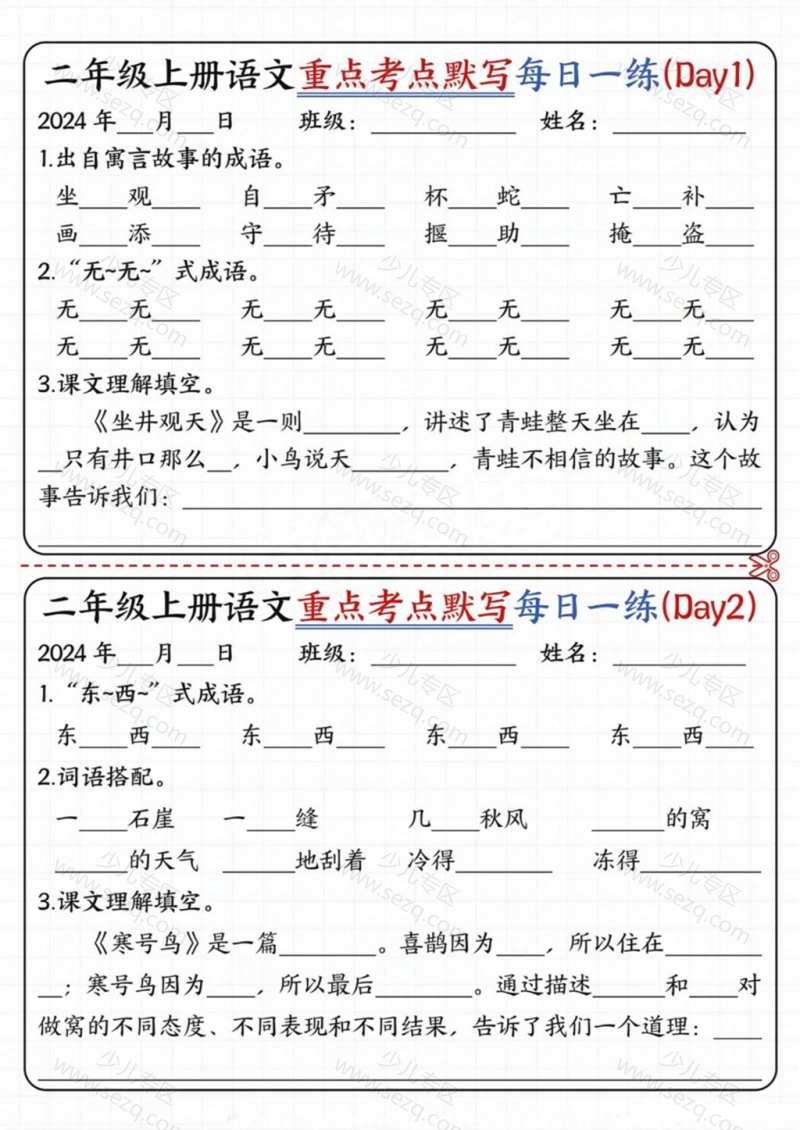 二年级上册语文重点考点默写每日一练(Day1)
2024 年___月___日 班级：____________ 姓名：___________
1.出自寓言故事的成语。
坐____观____ 自____矛____ 杯____蛇____ 亡____补____
画____添____ 守____待____ 揠____助____ 掩____盗____
2.“无~无~”式成语。
无____无____ 无____无____ 无____无____ 无____无____
无____无____ 无____无____ 无____无____ 无____无____
3.课文理解填空。
《坐井观天》是一则________，讲述了青蛙整天坐在____，认为
__只有井口那么__，小鸟说天________，青蛙不相信的故事。这个故
事告诉我们：________________________________________________
二年级上册语文重点考点默写每日一练(Day2)
2024 年___月___日 班级：____________ 姓名：___________
1.“东~西~”式成语。
东____西____ 东____西____ 东____西____ 东____西____
2.词语搭配。
一____石崖 一____缝 几____秋风 ______的窝
______的天气 ______地刮着 冷得________ 冻得__________
3.课文理解填空。
《寒号鸟》是一篇________。喜鹊因为____，所以住在________
__；寒号鸟因为____，所以最后________。通过描述______和____对
做窝的不同态度、不同表现和不同结果，告诉了我们一个道理：____
少儿专区
www.sezq.com